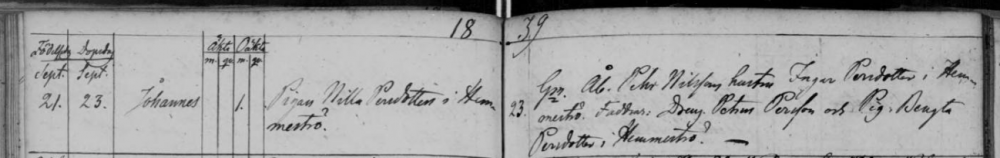 18 39
Födelsedag Dopsdag Äkta Oäkta
m. qv. m. qv.
Sept. Sept.
21. 23. Johannes 1. Pigan Nilla Persdotters i Hem-
meströ.
23. Gm. Åb. Pehr Nilssons hustru Ingar Persdotter i Hem-
meströ. Faddrar: Dreng Petrus Persson och Pig. Bengta
Persdotter i Hemmeströ. —